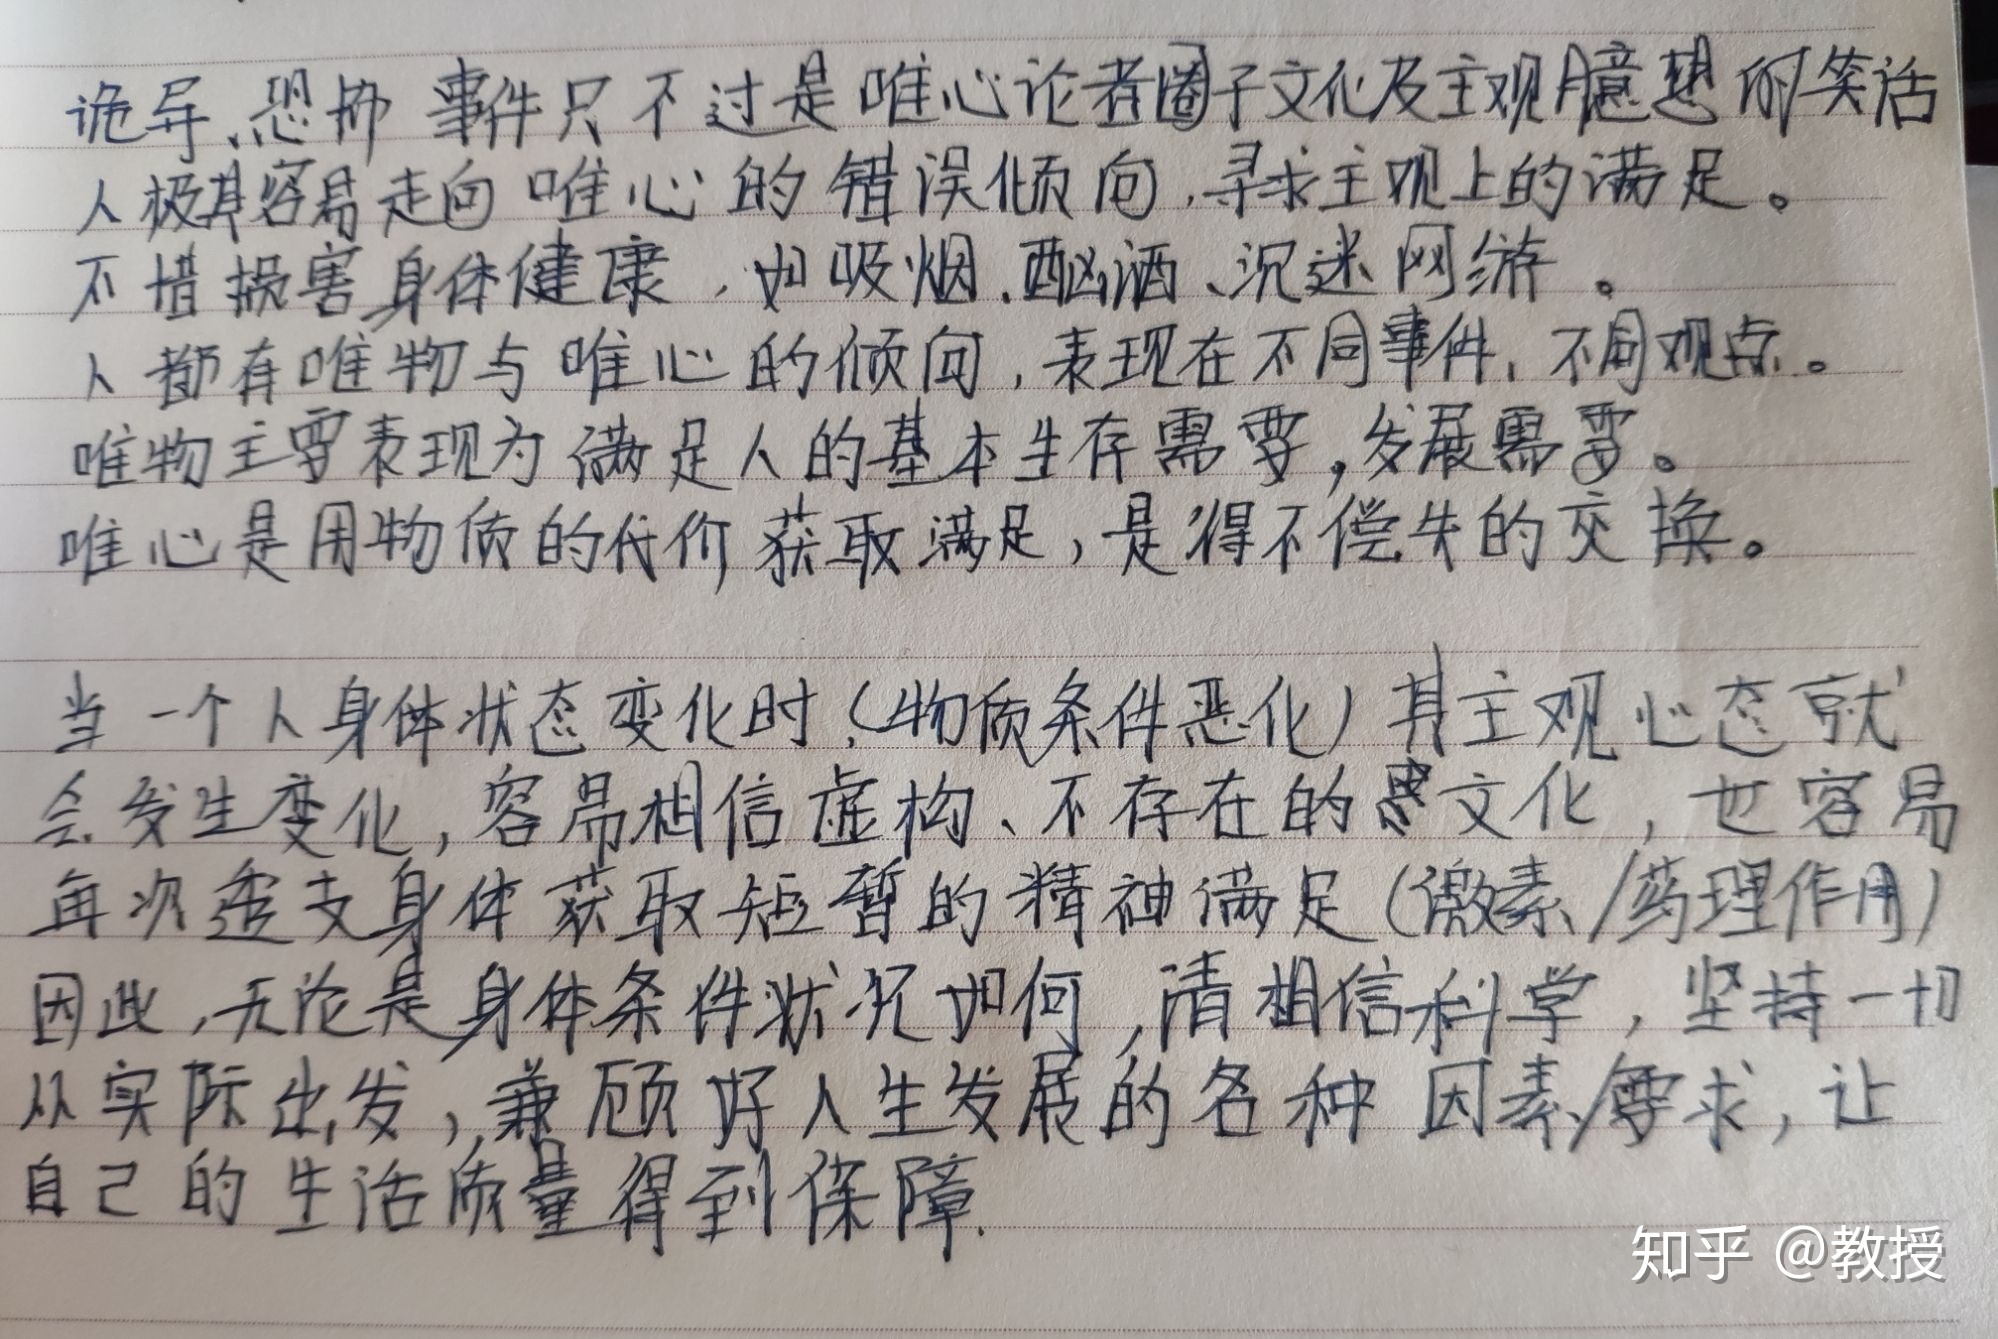 诡异、恐怖 事件只不过是唯心论者圈子文化及主观臆想的笑话
人极其容易走向唯心的错误倾向,寻求主观上的满足。
不惜损害身体健康,如吸烟、酗酒、沉迷网游。
人都有唯物与唯心的倾向,表现在不同事件,不同观点。
唯物主要表现为满足人的基本生存需要,发展需要。
唯心是用物质的代价获取满足,是得不偿失的交换。
当一个人身体状态变化时,(物质条件恶化)其主观心态就
会发生变化,容易相信虚构、不存在的文化,也容易
再次透支身体获取短暂的精神满足(激素/药理作用)
因此,无论是身体条件状况如何,请相信科学,坚持一切
从实际出发,兼顾好人生发展的各种因素/要求,让
自己的生活质量得到保障.
知乎 @教授